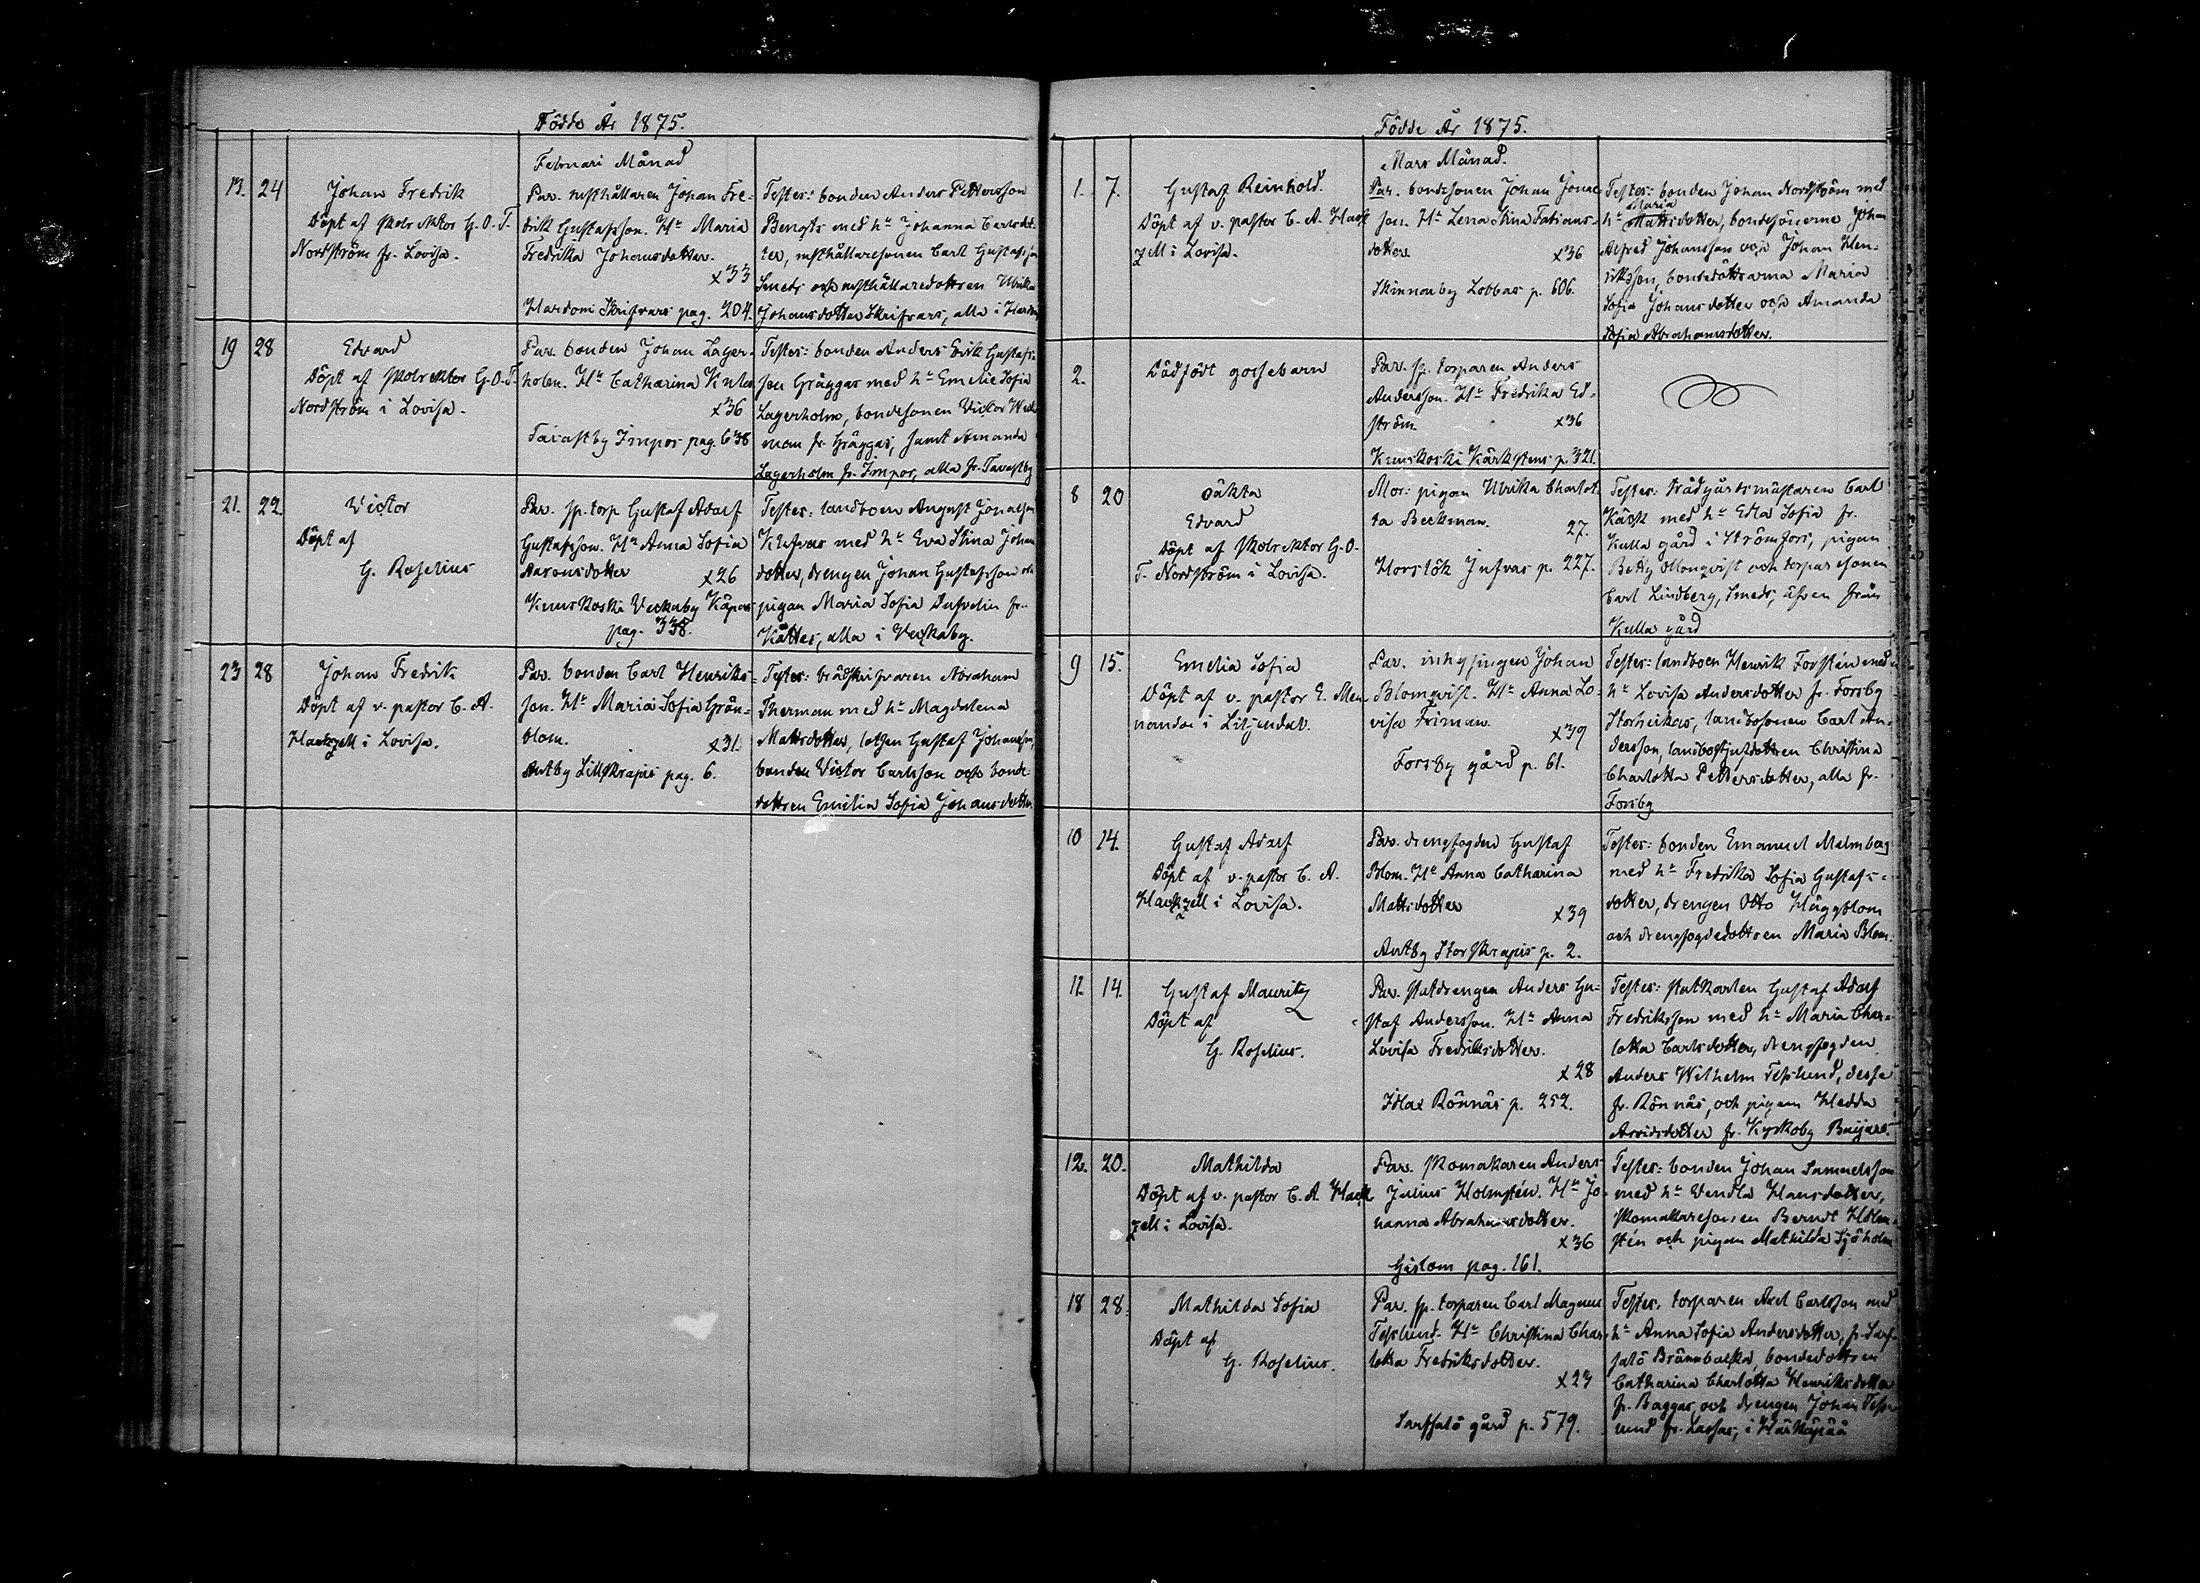 Födde År 1875.
Februari Månad
13. 24
Johan Fredrik
Döpt af skolrektor G. O. T.
Nordström fr. Lovisa.
Par. rusthållaren Johan Fre-
drik Gustafsson. Hu Maria
Fredrika Johansdotter.
x33
Hardom Skrifvars pag. 204.
Testes: bonden Anders Pettersson
Bengts med hu Johanna Carlsdot-
ter, rusthållaresonen Carl Gustafsson
Smeds och rusthållaredottren Ulrika
Johansdotter Skrifvars, alla i Hardom
19 28
Edvard
Döpt af skolrektor G. O. T.
Nordström i Lovisa.
Par. bonden Johan Lager-
holm. Hu Catharina
x36
Tavastby Impos pag. 638
Testes: bonden Anders Erik Gustafs-
son Gräggas med hu Emelie Sofia
Lagerholm, bondesonen Victor
man fr. Gräggas, samt Amanda
Lagerholm fr. Impos, alla fr. Tavastby
21. 22.
Victor
Döpt af
G. Roselius
Par. sp. torp Gustaf Adolf
Gustafsson. Hu Anna Sofia
Aaronsdotter x26
Kuuskoski Veckaby
pag. 338.
Testes: landboen August Jonasson
med hu Eva Stina Johans
dotter, drengen Johan Gustafsson och
pigan Maria Sofia fr.
alla i Veckaby.
23 28
Johan Fredrik
Döpt af v. pastor C. A.
Hackzell i Lovisa.
Par. bonden Carl Henriks-
son. Hu Maria Sofia Grön-
blom. x31.
Antby Lillskrapis pag. 6.
Testes: Abraham
Therman med hu Magdalena
Mattsdotter, lotsen Gustaf Johansson,
bonden Victor Carlsson och bonde
dottren Emilia Sofia Johansdotter.
Födde År 1875.
Mars Månad.
1. 7.
Gustaf Reinhold.
Döpt af v. pastor C. A. Hack
zell i Lovisa.
Par. bondesonen Johan Jonas-
son. Hu Lena Stina Fabians-
dotter x36
Skinnarby Lobbas p. 606.
Testes: bonden Johan Nordström med
Maria
hu Mattsdotter, bondesönerne Johan
Alfred Johansson och Johan Hen-
riksson, bondedöttrarna Maria
Sofia Johansdotter och Amanda
Sofia Abrahamsdotter.
2.
Dödfödt gossebarn
Par. sp. torparen Anders
Andersson. Hu Fredrika Ed-
ström. x36
Kuuskoski Kärkstens p. 321.
8 20
oäkta
Edvard
Döpt af skolrektor G. O.
T. Nordström i Lovisa.
Mor: pigan Ulrika Charlot-
ta Beckman.
27.
Horslök Jufvas p. 227.
Testes: trädgårdsmästaren Carl
Käck med hu Edla Sofia fr.
Kulla gård i Strömfors, pigan
Betty och torparesonen
Carl Lindberg, Smeds, äfven från
Kulla gård
9 15.
Emelia Sofia
Döpt af v. pastor E. Men
nander i Liljendal.
Par. inhysingen Johan
Blomqvist. Hu Anna Lo-
visa Friman.
x39
Forsby gård p. 61.
Testes: landboen Henrik Forstén med
hu Lovisa Andersdotter fr. Forsby
Storheikas, landbosonen Carl An-
dersson, Christina
Charlotta Pettersdotter, alla fr.
Forsby
10 14.
Gustaf Adolf
Döpt af v. pastor C. A.
Hackzell i Lovisa.
Par. drengfogden Gustaf
Blom. Hu Anna Catharina
Mattsdotter x39
Antby Storskrapis p. 2.
Testes: bonden Emanuel Malmberg
med hu Fredrika Sofia Gustafs-
dotter, drengen Otto Häggblom
och drengfogdedottren Maria Blom.
11. 14.
Gustaf Mauritz
Döpt af
G. Roselius.
Par. statdrengen Anders Gu-
staf Andersson. Hu Anna
Lovisa Fredriksdotter.
x28
Idlax Rönnäs p. 252.
Testes: statkarlen Gustaf Adolf
Fredriksson med hu Maria Char-
lotta Carlsdotter, drengfogden
Anders Wilhelm Tesslund, dessa
fr. Rönnäs, och pigan Hedda
Arvidsdotter fr. Kyskoby Baijars.
12. 20.
Mathilda
Döpt af v. pastor C. A. Hack
zell i Lovisa.
Par. skomakaren Anders
Julius Holmstén. Hu Jo-
hanna Abrahamsdotter.
x36
Gislom pag. 161.
Testes: bonden Johan Samuelsson
med hu Vendla Hansdotter,
skomakaresonen Berndt Holm-
stén och pigan Mathilda Sjöholm
18 28.
Mathilda Sofia
Döpt af
G. Roselius.
Par. sp. torparen Carl Magnus
Tesslund. Hu Christina Char-
lotta Fredriksdotter.
x23
Sarfsalö gård p. 579.
Testes. torparen Axel Carlsson med
hu Anna Sofia Andersdotter, fr. Sarf-
salö Brännbacka, bondedottren
Catharina Charlotta Henriksdotter
fr. Baggas, och drengen Johan Tess-
lund fr. Lassas, i Härkäpää